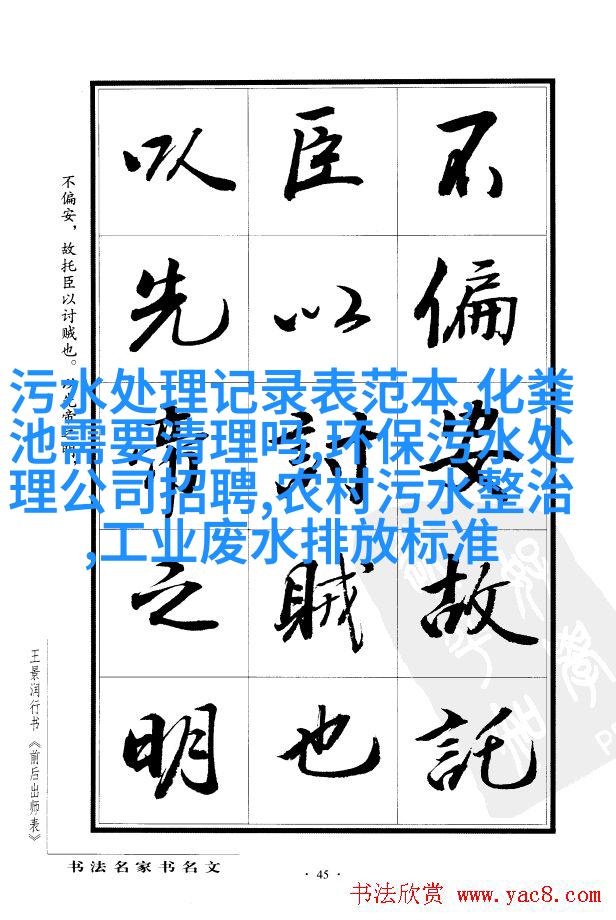 不偏安故託
臣以討賊也
以先帝之明
不偏安，故托臣以讨贼也。以先帝之明，
污水处理记录表范本,化粪
池需要清理吗,环保污水处
理公司招聘,农村污水整治
,工业废水排放标准
王景润行书《前后出师表》
书法名家书名文
·45·
书法欣赏 www.yac8.com